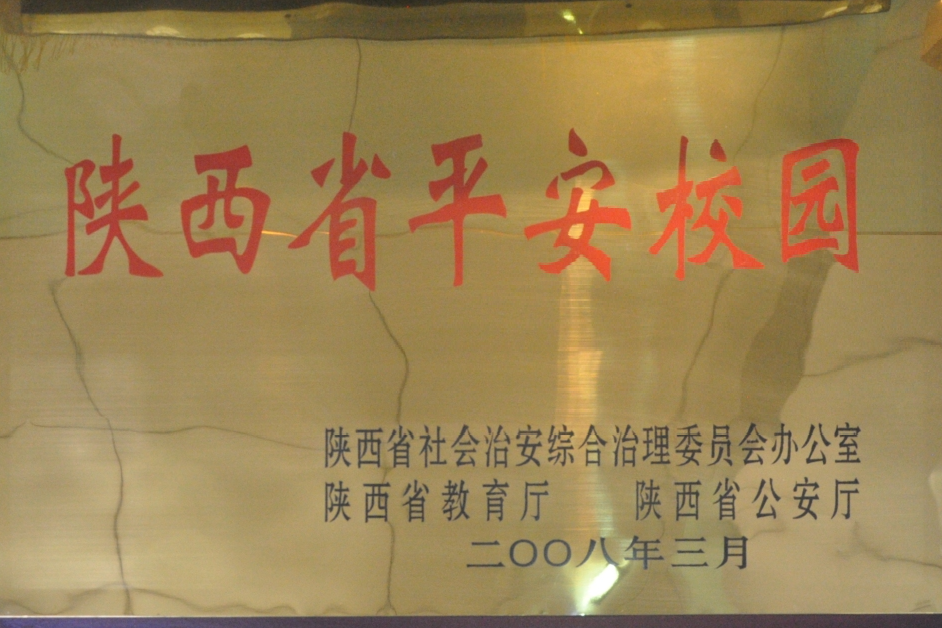 陕西省平安校园
陕西省社会治安综合治理委员会办公室
陕西省教育厅 陕西省公安厅
二〇〇八年三月